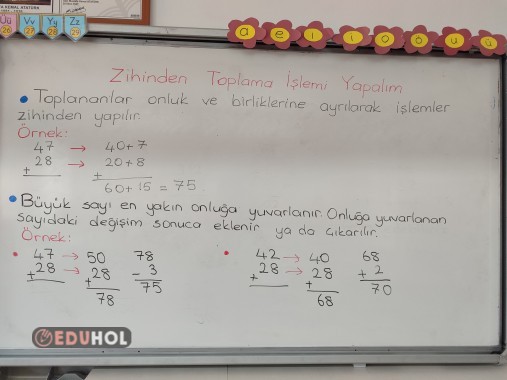 KEMAL ATATÜRK
Üü Vv Yy Zz
26 27 28 29
a e ı i o ö u ü
Zihinden Toplama İşlemi Yapalım
• Toplananlar onluk ve birliklerine ayrılarak işlemler
zihinden yapılır.
Örnek:
47 → 40+7
+ 28 → 20+8
+
60+15 = 75
• Büyük sayı en yakın onluğa yuvarlanır. Onluğa yuvarlanan
sayıdaki değişim sonuca eklenir ya da çıkarılır.
Örnek:
• 47 → 50 78 • 42 → 40 68
+28 → +28 - 3 +28 → +28 + 2
78 75 68 70
EDUHOL